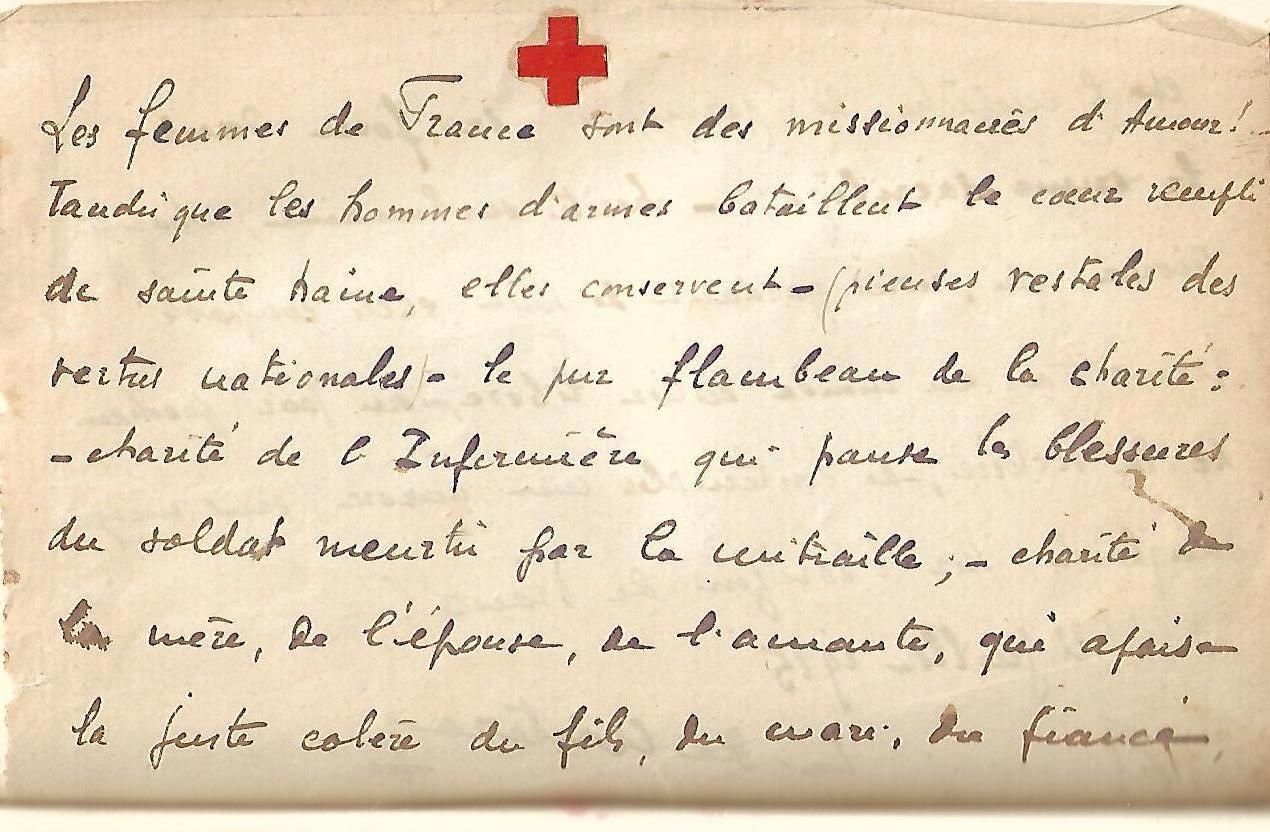 Les femmes de France sont des missionnaires d'Amour!
Tandis que les hommes d'armes bataillent le cœur rempli
de sainte haine, elles conservent - (pieuses vestales des
vertus nationales) - le pur flambeau de la charité:
- charité de l'Infirmière qui panse les blessures
du soldat meurtri par la mitraille; - charité de
la mère, de l'épouse, de l'amante, qui apaise
la juste colère du fils, du mari, du fiancé,